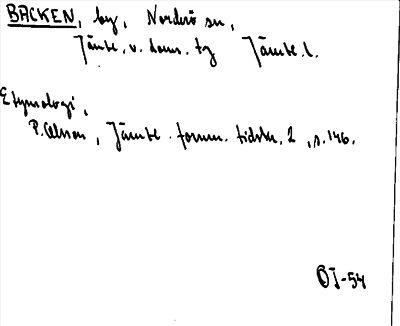 BACKEN, by, Norderö sn,
Jämtl. v. doms. tg Jämtl. l.
Etymologi,
P. Olsson, Jämtl. fornm. tidskr. 2, s. 146.
OJ-54